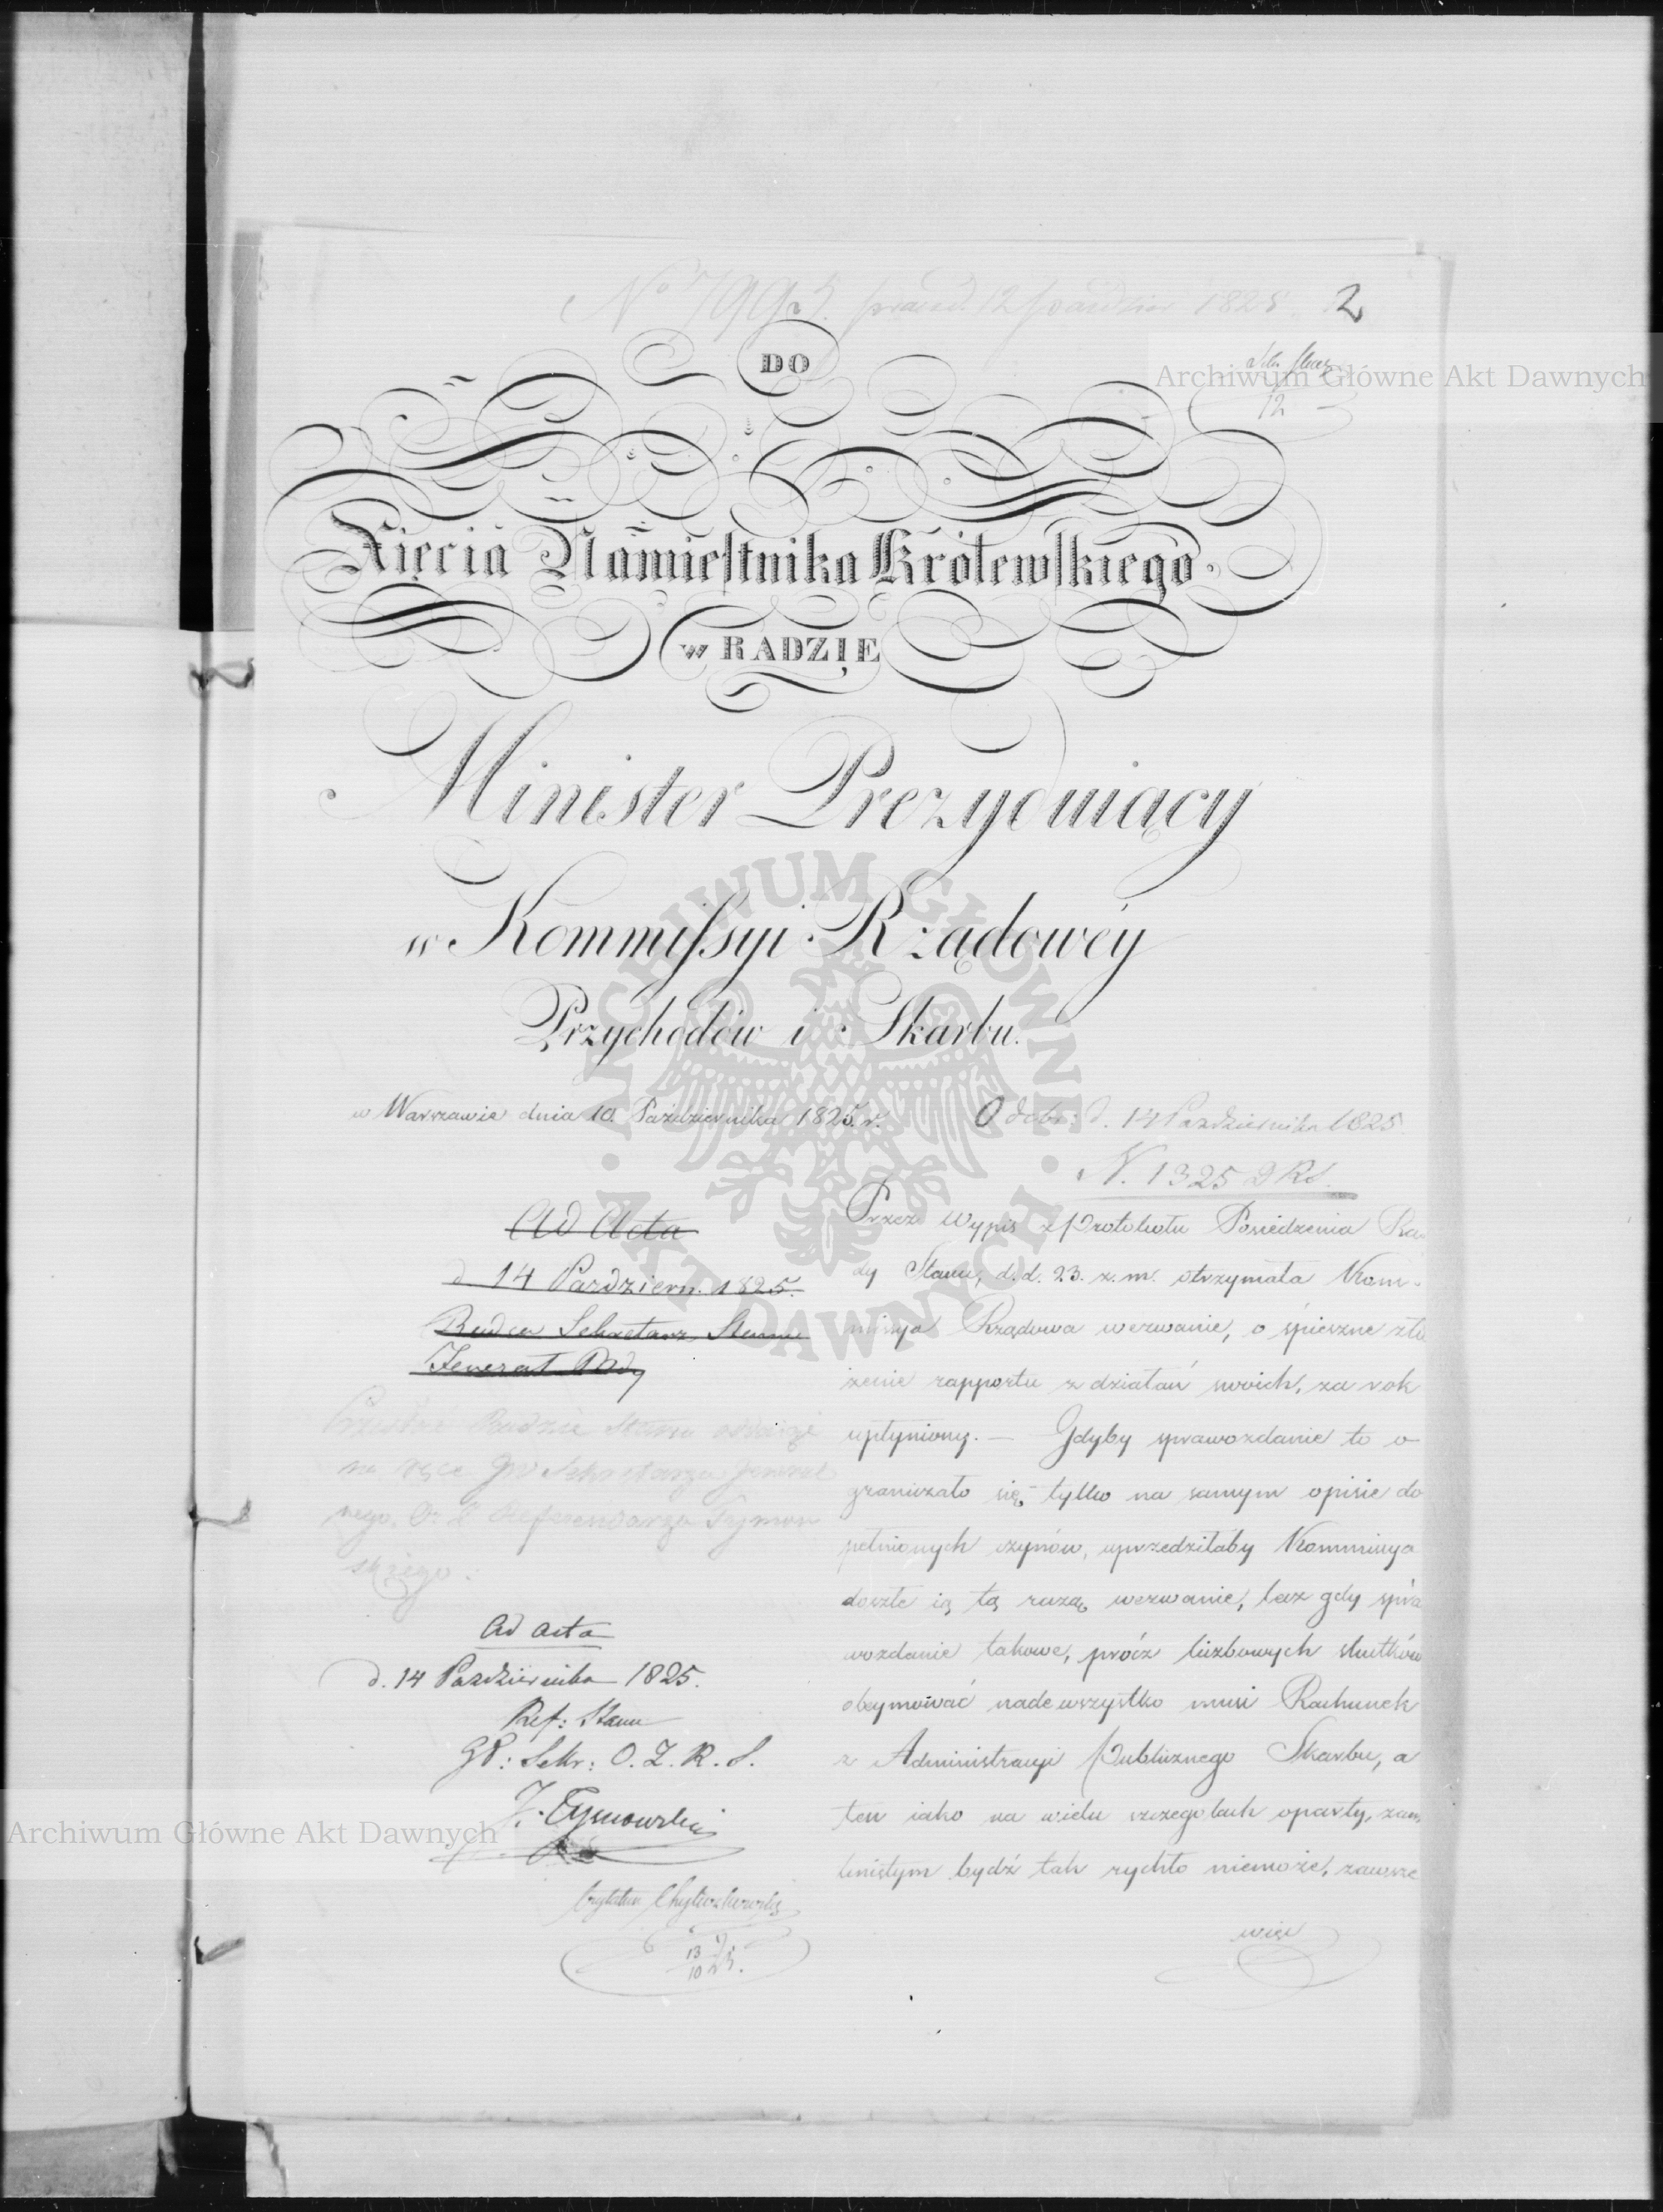 No 7993. praes. 12 Paździer 1825. 2
12
DO
Xięcia Namiestnika Królewskiego
w RADZIE
Minister Prezyduiący
w Kommissyi Rządowéy
Przychodów i Skarbu.
w Warszawie dnia 10. Października 1825. r.
Odebr: d. 14 Października 1825.
N. 1325 D R S.
Ad Acta
d 14 Październ. 1825.
Radca Sekretarz Stanu
Jenerał Bdy
Przesłać Radzie Stanu oddając
na ręce JW Sekretarza Jeneral
nego, O. Z. Referendarza Tymow
skiego.
Ad acta
d. 14 Października 1825.
Ref: Stanu
ZP: Sekr: O. Z. R. S.
J. Tymowski
13/10 25.
Przez Wypis z Protokułu Posiedzenia Ra
dy Stanu, d. d. 23. z. m. otrzymała Kom-
missya Rządowa wezwanie, o śpieszne zło
żenie rapportu z działań swoich, za rok
upłyniony. — Gdyby sprawozdanie to o
graniczało się tylko na samym opisie do
pełnionych czynów, uprzedziłaby Kommissya
doszłe ią tą razą wezwanie, lecz gdy spra
wozdanie takowe, prócz liczbowych skutków
obeymować nadewszystko musi Rachunek
z Administracyi Publicznego Skarbu, a
ten iako na wielu szczegółach oparty, zam
kniętym bydź tak rychło niemoże, zawsze
więc
Archiwum Główne Akt Dawnych
ARCHIWUM GŁÓWNE · AKT DAWNYCH ·
Archiwum Główne Akt Dawnych